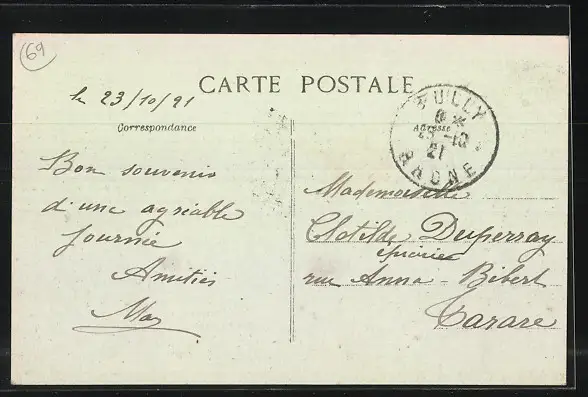 69
le 23/10/21
CARTE POSTALE
Correspondance
Adresse
RHONE
21
Bon souvenir
d'une agréable
journée
Amitiés
Mademoiselle
Clotilde Duperray
épicière
rue Anna-Bibert
Tarare